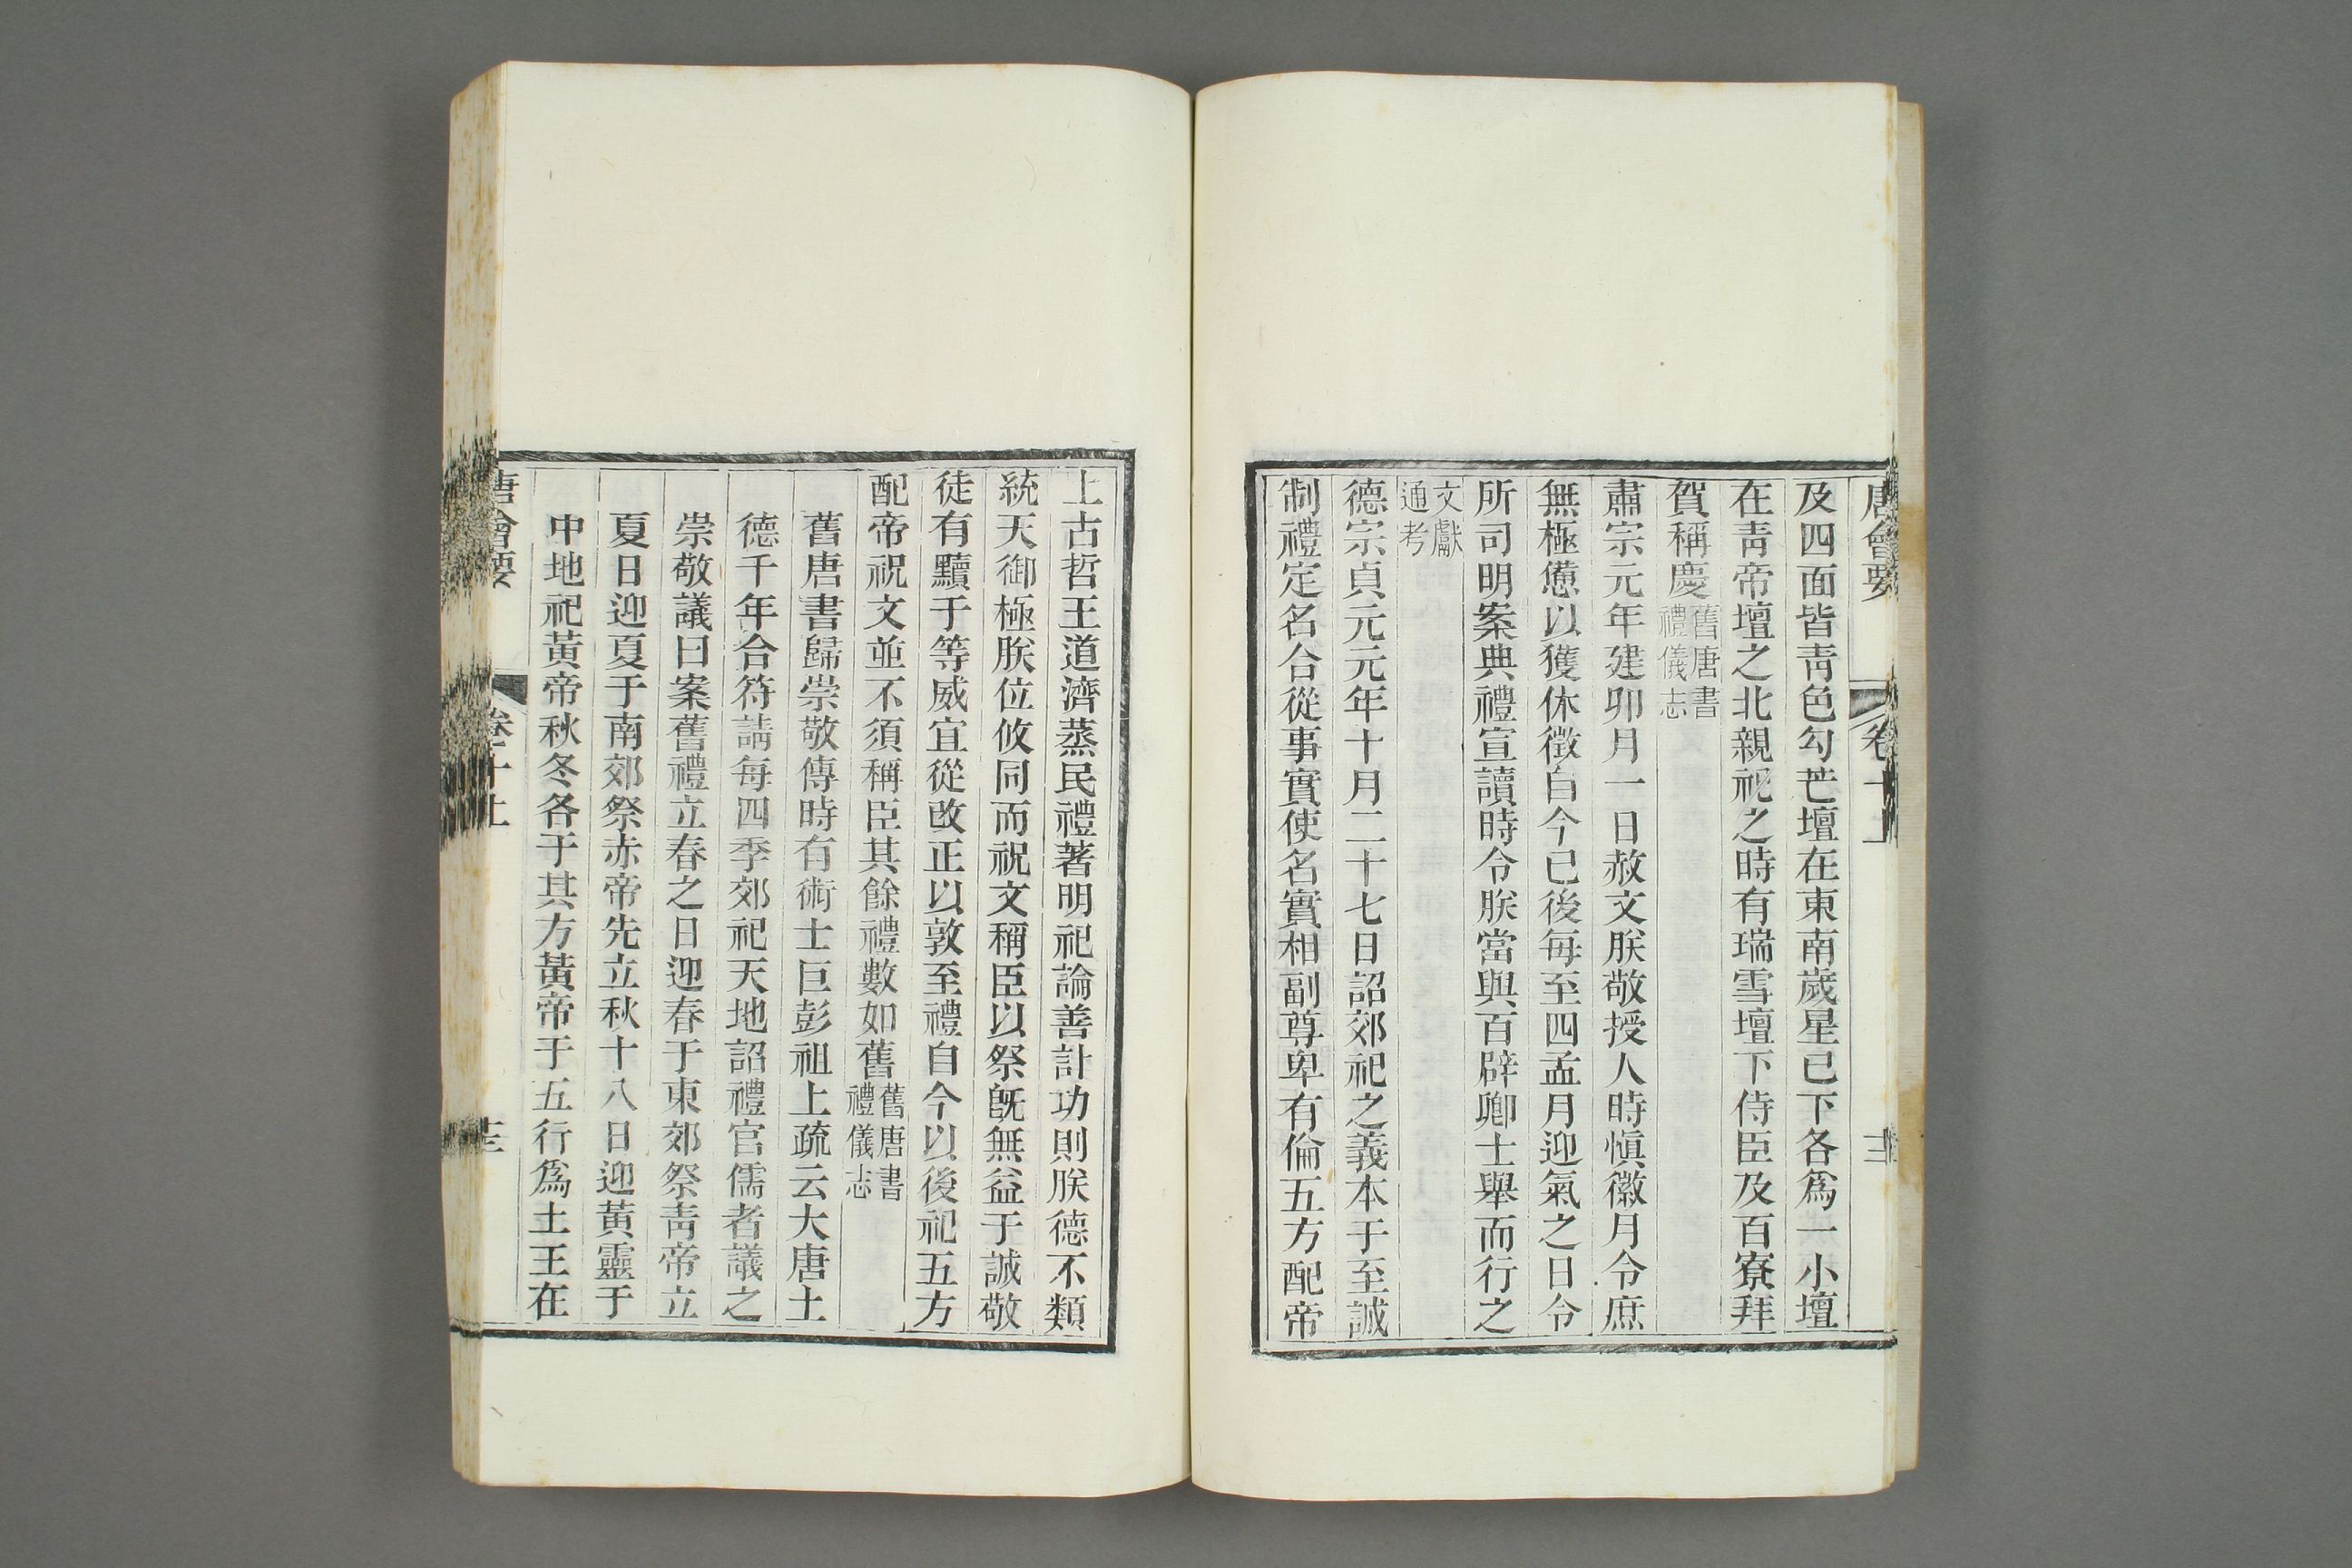 唐會要 卷十上
及四面皆靑色勾芒壇在東南歲星已下各爲一小壇
在靑帝壇之北親祀之時有瑞雪壇下侍臣及百寮拜
賀稱慶舊唐書禮儀志
肅宗元年建卯月一日赦文朕敬授人時愼徽月令庶
無極憊以獲休徵自今已後每至四孟月迎氣之日令
所司明案典禮宣讀時令朕當與百辟卿士舉而行之
文獻通考
德宗貞元元年十月二十七日詔郊祀之義本于至誠
制禮定名合從事實使名實相副尊卑有倫五方配帝
上古哲王道濟蒸民禮著明祀論善計功則朕德不類
統天御極朕位攸同而祝文稱臣以祭旣無益于誠敬
徒有黷于等威宜從改正以敦至禮自今以後祀五方
配帝祝文並不須稱臣其餘禮數如舊舊唐書禮儀志
舊唐書歸崇敬傳時有術士巨彭祖上疏云大唐土
德千年合符請每四季郊祀天地詔禮官儒者議之
崇敬議曰案舊禮立春之日迎春于東郊祭靑帝立
夏日迎夏于南郊祭赤帝先立秋十八日迎黃靈于
中地祀黃帝秋冬各于其方黃帝于五行爲土王在
唐會要 卷十上